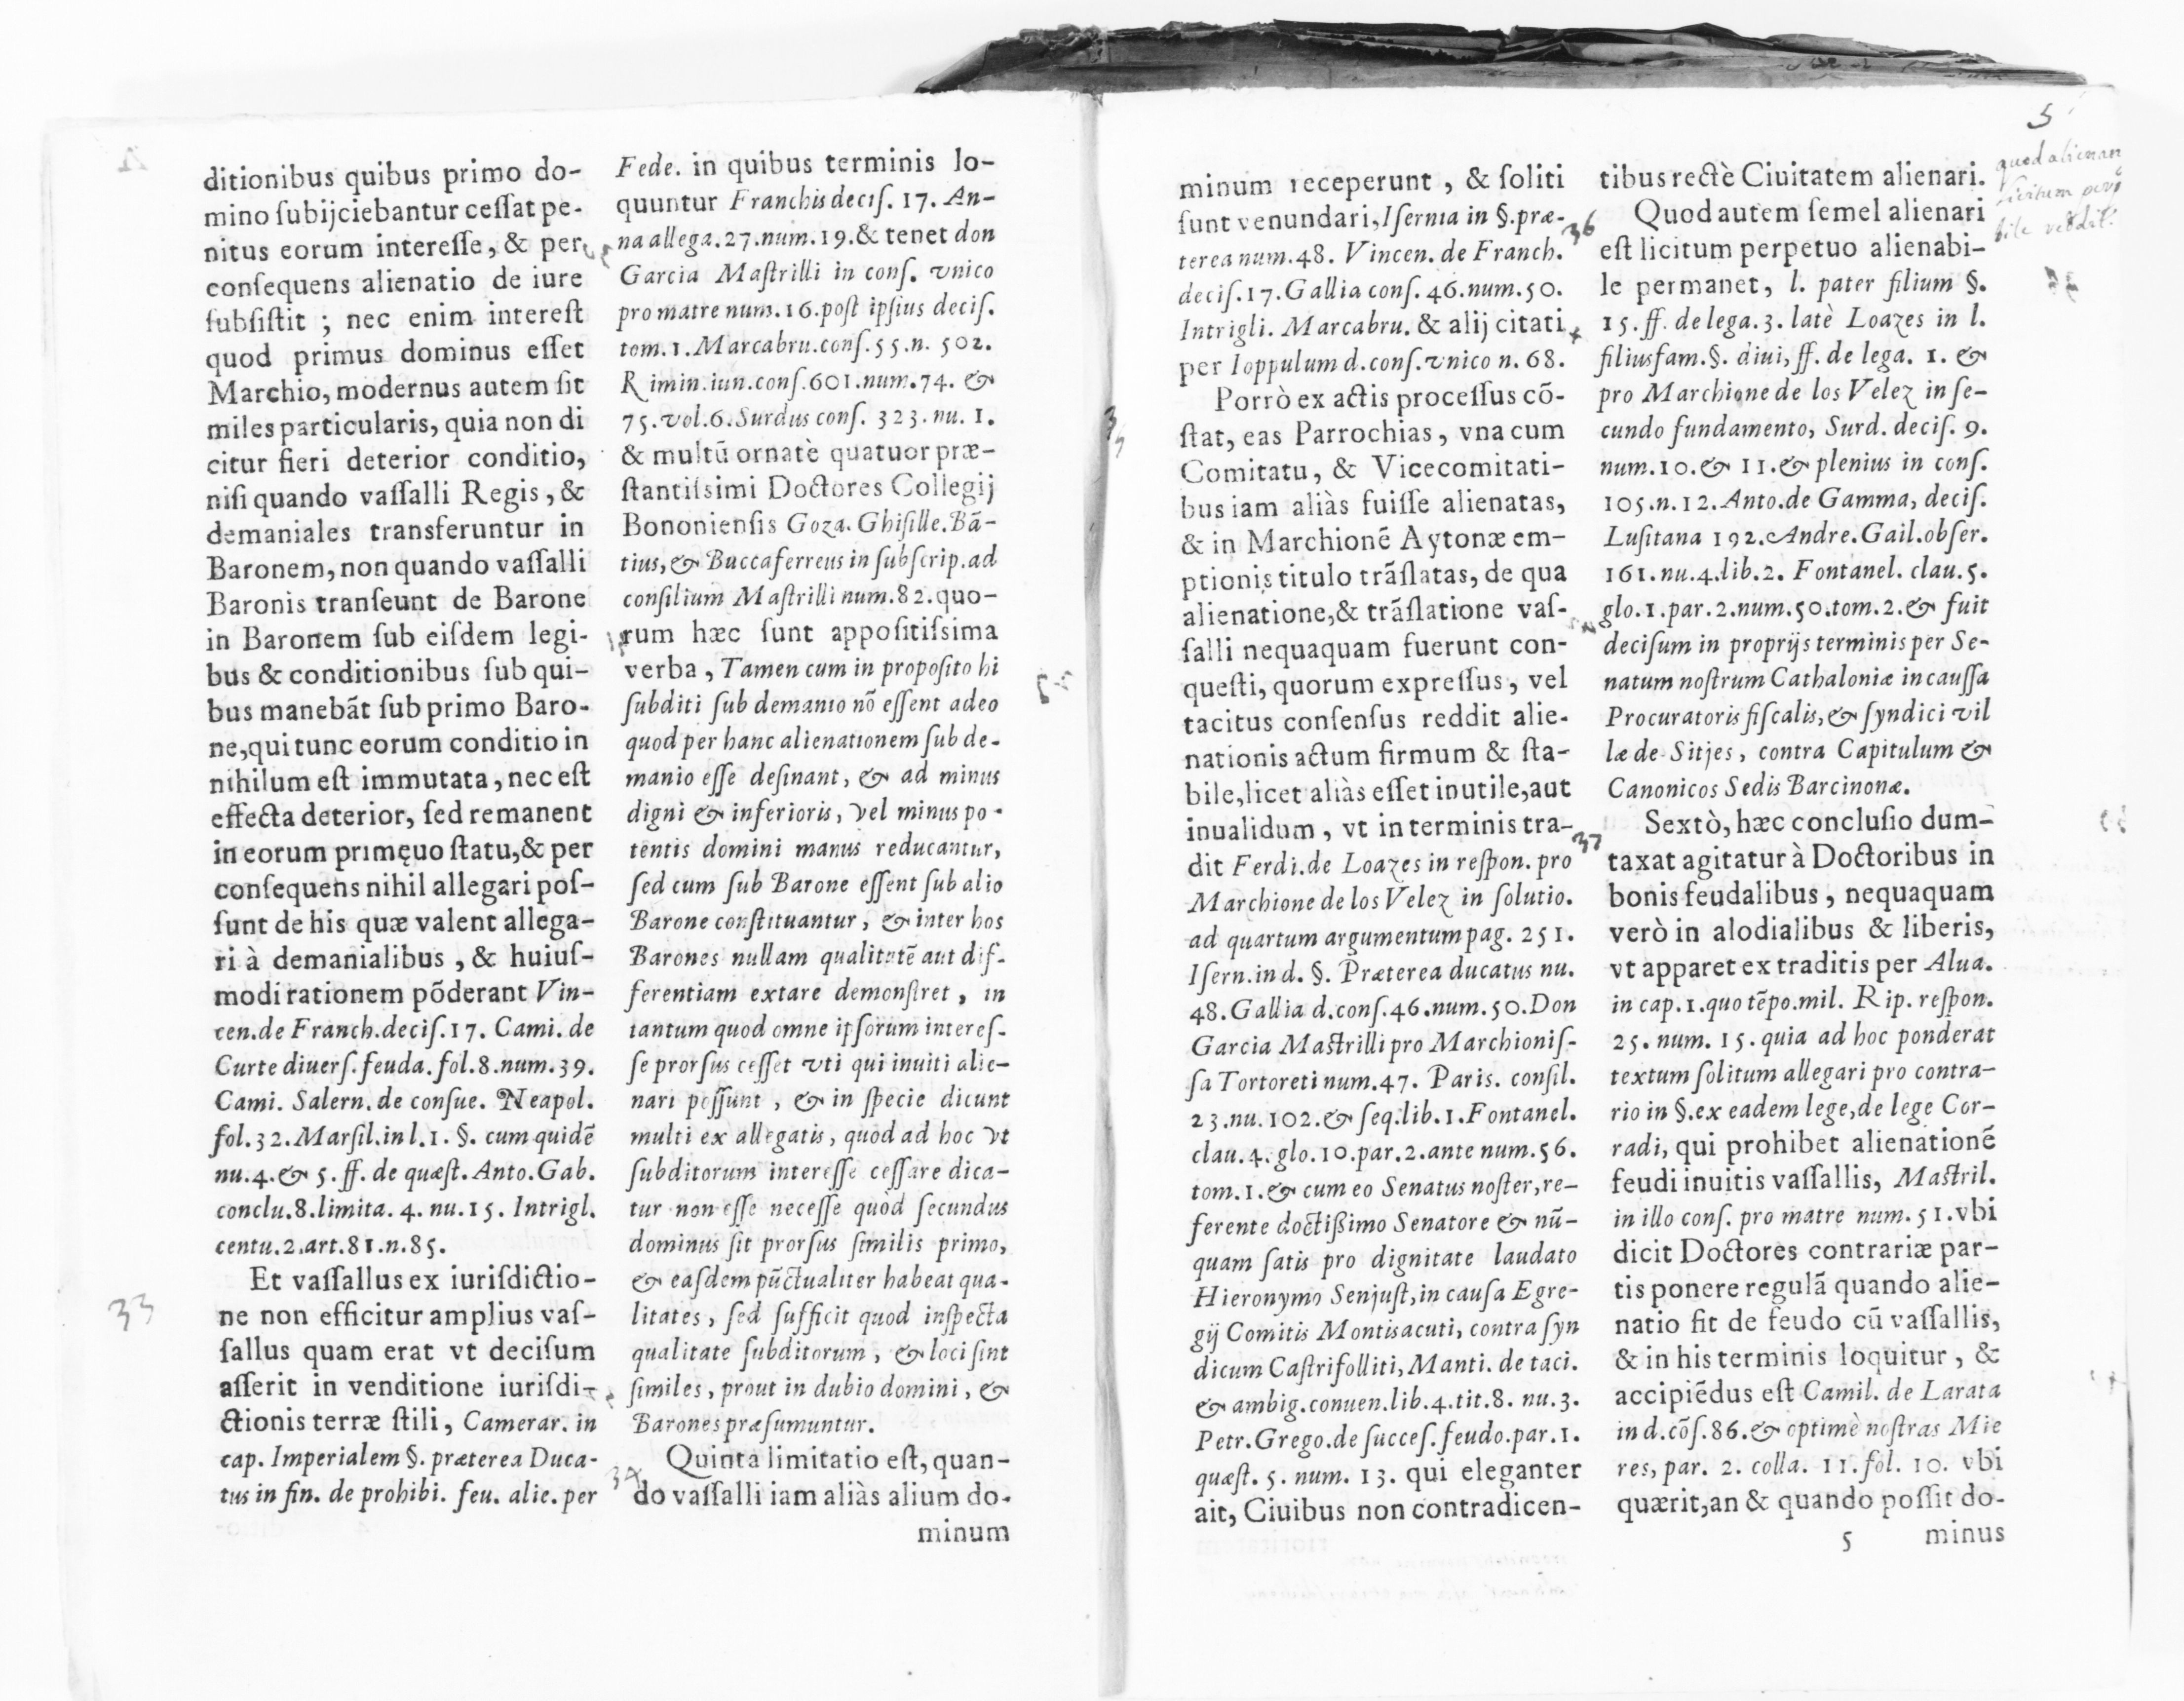 ditionibus quibus primo do-
mino ſubijciebantur ceſſat pe-
nitus eorum intereſſe, & per
conſequens alienatio de iure
ſubſiſtit ; nec enim intereſt
quod primus dominus eſſet
Marchio, modernus autem ſit
miles particularis, quia non di
citur fieri deterior conditio,
niſi quando vaſſalli Regis, &
demaniales transferuntur in
Baronem, non quando vaſſalli
Baronis tranſeunt de Barone
in Baronem ſub eiſdem legi-
bus & conditionibus ſub qui-
bus manebãt ſub primo Baro-
ne, qui tunc eorum conditio in
nihilum eſt immutata, nec eſt
effecta deterior, ſed remanent
in eorum primęuo ſtatu, & per
conſequens nihil allegari poſ-
ſunt de his quæ valent allega-
ri à demanialibus, & huiuſ-
modi rationem põderant Vin-
cen. de Franch. deciſ. 17. Cami. de
Curte diuerſ. feuda. fol. 8. num. 39.
Cami. Salern. de conſue. Neapol.
fol. 32. Marſil. in l. 1. §. cum quidẽ
nu. 4. & 5. ff. de quæſt. Anto. Gab.
conclu. 8. limita. 4. nu. 15. Intrigl.
centu. 2. art. 81. n. 85.
Et vaſſallus ex iuriſdictio-
33
ne non efficitur amplius vaſ-
ſallus quam erat vt deciſum
aſſerit in venditione iuriſdi-
ctionis terræ ſtili, Camerar. in
cap. Imperialem §. præterea Duca-
tus in fin. de prohibi. feu. alie. per
Fede. in quibus terminis lo-
quuntur Franchis deciſ. 17. An-
na allega. 27. num. 19. & tenet don
Garcia Maſtrilli in conſ. vnico
pro matre num. 16. poſt ipſius deciſ.
tom. 1. Marcabru. conſ. 55. n. 502.
Rimin. iun. conſ. 601. num. 74. &
75. vol. 6. Surdus conſ. 323. nu. 1.
& multũ ornatè quatuor præ-
ſtantiſsimi Doctores Collegij
Bononienſis Goza. Ghiſille. Bã-
tius, & Buccaferreus in ſubſcrip. ad
conſilium Maſtrilli num. 82. quo-
rum hæc ſunt appoſitiſsima
verba, Tamen cum in propoſito hi
ſubditi ſub demanio nõ eſſent adeo
quod per hanc alienationem ſub de-
manio eſſe deſinant, & ad minus
digni & inferioris, vel minus po-
tentis domini manus reducantur,
ſed cum ſub Barone eſſent ſub alio
Barone conſtituantur, & inter hos
Barones nullam qualitatẽ aut dif-
ferentiam extare demonſtret, in
tantum quod omne ipſorum intereſ-
ſe prorſus ceſſet vti qui inuiti alie-
nari poſſunt, & in ſpecie dicunt
multi ex allegatis, quòd ad hoc vt
ſubditorum intereſſe ceſſare dica-
tur non eſſe neceſſe quòd ſecundus
dominus ſit prorſus ſimilis primo,
& eaſdem pũctualiter habeat qua-
litates, ſed ſufficit quod inſpecta
qualitate ſubditorum, & loci ſint
ſimiles, prout in dubio domini, &
Barones præſumuntur.
Quinta limitatio eſt, quan-
34
do vaſſalli iam aliàs alium do-
minum
5
minum receperunt, & ſoliti
ſunt venundari, Iſernia in §. præ-
terea num. 48. Vincen. de Franch.
deciſ. 17. Gallia conſ. 46. num. 50.
Intrigli. Marcabru. & alij citati
per Ioppulum d. conſ. vnico n. 68.
Porrò ex actis proceſſus cõ-
ſtat, eas Parrochias, vna cum
Comitatu, & Vicecomitati-
bus iam aliàs fuiſſe alienatas,
& in Marchionẽ Aytonæ em-
ptionis titulo trãſlatas, de qua
alienatione, & trãſlatione vaſ-
ſalli nequaquam fuerunt con-
queſti, quorum expreſſus, vel
tacitus conſenſus reddit alie-
nationis actum firmum & ſta-
bile, licet aliàs eſſet inutile, aut
inualidum, vt in terminis tra-
dit Ferdi. de Loazes in reſpon. pro
Marchione de los Velez in ſolutio.
ad quartum argumentum pag. 251.
Iſern. in d. §. Præterea ducatus nu.
48. Gallia d. conſ. 46. num. 50. Don
Garcia Maſtrilli pro Marchioniſ-
ſa Tortoreti num. 47. Paris. conſil.
23. nu. 102. & ſeq. lib. 1. Fontanel.
clau. 4. glo. 10. par. 2. ante num. 56.
tom. 1. & cum eo Senatus noſter, re-
ferente doctißimo Senatore & nũ-
quam ſatis pro dignitate laudato
Hieronymo Senjuſt, in cauſa Egre-
gij Comitis Montisacuti, contra ſyn
dicum Caſtrifolliti, Manti. de taci.
& ambig. conuen. lib. 4. tit. 8. nu. 3.
Petr. Grego. de ſucceſ. feudo. par. 1.
quæſt. 5. num. 13. qui eleganter
ait, Ciuibus non contradicen-
tibus rectè Ciuitatem alienari.
36
Quod autem ſemel alienari
eſt licitum perpetuo alienabi-
le permanet, l. pater filium §.
15. ff. de lega. 3. latè Loazes in l.
filiusfam. §. diui, ff. de lega. 1. &
pro Marchione de los Velez in ſe-
cundo fundamento, Surd. deciſ. 9.
num. 10. & 11. & plenius in conſ.
105. n. 12. Anto. de Gamma, deciſ.
Luſitana 192. Andre. Gail. obſer.
161. nu. 4. lib. 2. Fontanel. clau. 5.
glo. 1. par. 2. num. 50. tom. 2. & fuit
deciſum in proprijs terminis per Se-
natum noſtrum Cathaloniæ in cauſſa
Procuratoris fiſcalis, & ſyndici vil
læ de Sitjes, contra Capitulum &
Canonicos Sedis Barcinonæ.
Sextò, hæc concluſio dum-
37
taxat agitatur à Doctoribus in
bonis feudalibus, nequaquam
verò in alodialibus & liberis,
vt apparet ex traditis per Alua.
in cap. 1. quo tẽpo. mil. Rip. reſpon.
25. num. 15. quia ad hoc ponderat
textum ſolitum allegari pro contra-
rio in §. ex eadem lege, de lege Cor-
radi, qui prohibet alienationẽ
feudi inuitis vaſſallis, Maſtril.
in illo conſ. pro matre num. 51. vbi
dicit Doctores contrariæ par-
tis ponere regulã quando alie-
natio fit de feudo cũ vaſſallis,
& in his terminis loquitur, &
accipiẽdus eſt Camil. de Larata
in d. cõſ. 86. & optimè noſtras Mie
res, par. 2. colla. 11. fol. 10. vbi
quærit, an & quando poſſit do-
5 minus
quod alienari